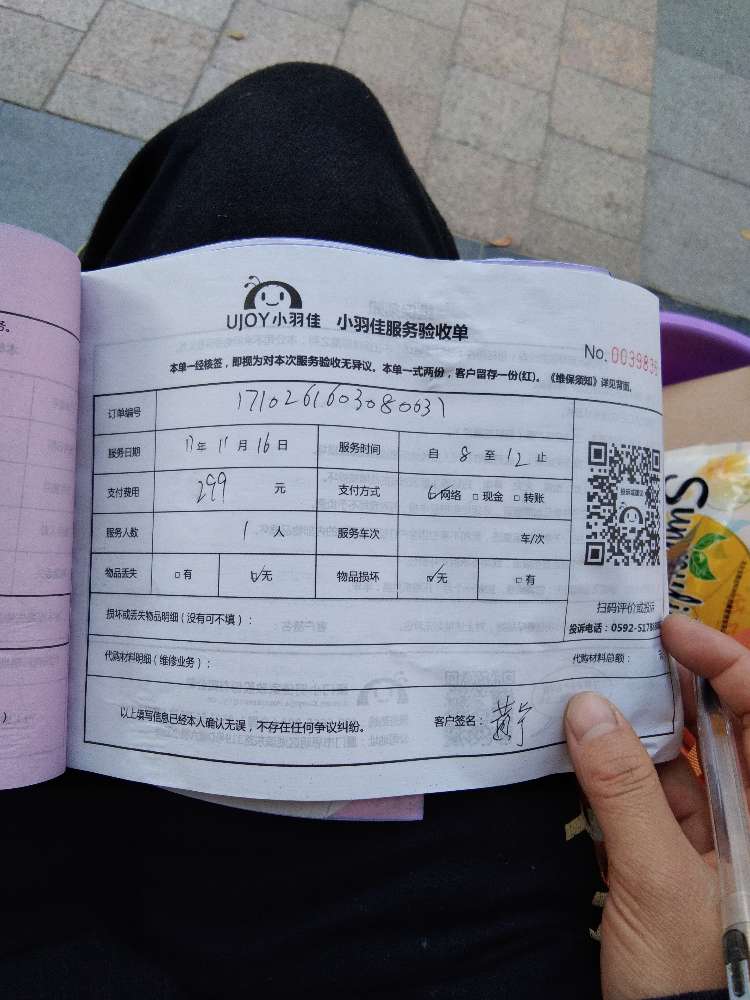 UJOY小羽佳 小羽佳服务验收单
No. 003983
本单一经核签，即视为对本次服务验收无异议。本单一式两份，客户留存一份(红)。《维保须知》详见背面。
订单编号 1710261603080631
服务日期 17年 11月 16日 服务时间 自 8 至 12 止
支付费用 299 元 支付方式 ☑网络 □现金 □转账
服务人数 1 人 服务车次 车/次
物品丢失 □有 ☑无 物品损坏 ☑无 □有
投诉或建议
扫码评价或投诉
投诉电话：0592-5178
损坏或丢失物品明细（没有可不填）：
代购材料明细（维修业务）： 代购材料总额：
以上填写信息已经本人确认无误，不存在任何争议纠纷。 客户签名：黄宁
Sun
务。